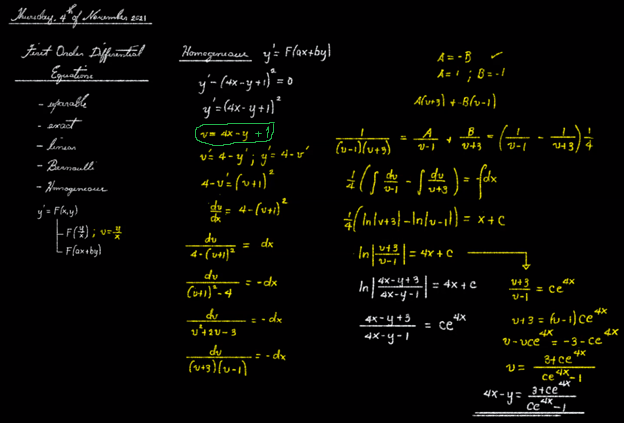 Thursday, 4th of November 2021
First Order Differential
Equations
- separable
- exact
- linear
- Bernoulli
- Homogeneous
y' = F(x,y)
F(y/x) ; v = y/x
F(ax+by)
Homogeneous y' = F(ax+by)
y' - (4x-y+1)² = 0
y' = (4x-y+1)²
v = 4x-y +1
v' = 4-y' ; y' = 4-v'
4-v' = (v+1)²
dv/dx = 4-(v+1)²
dv/(4-(v+1)²) = dx
dv/((v+1)²-4) = -dx
dv/(v²+2v-3) = -dx
dv/((v+3)(v-1)) = -dx
A = -B ✓
A = 1 ; B = -1
A(v+3) + B(v-1)
1/((v-1)(v+3)) = A/(v-1) + B/(v+3) = (1/(v-1) - 1/(v+3)) 1/4
1/4 (∫ dv/(v-1) - ∫ dv/(v+3)) = ∫dx
1/4 (ln|v+3| - ln|v-1|) = x+c
ln|(v+3)/(v-1)| = 4x+c
ln|(4x-y+3)/(4x-y-1)| = 4x+c
(4x-y+3)/(4x-y-1) = ce^4x
(v+3)/(v-1) = ce^4x
v+3 = (v-1)ce^4x
v-vce^4x = -3-ce^4x
v = (3+ce^4x)/(ce^4x-1)
4x-y = (3+ce^4x)/(ce^4x-1)